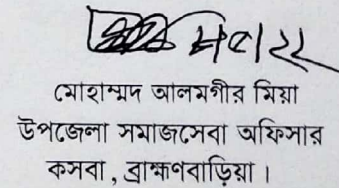 মোহাম্মদ আলমগীর মিয়া
উপজেলা সমাজসেবা অফিসার
কসবা, ব্রাহ্মণবাড়িয়া।